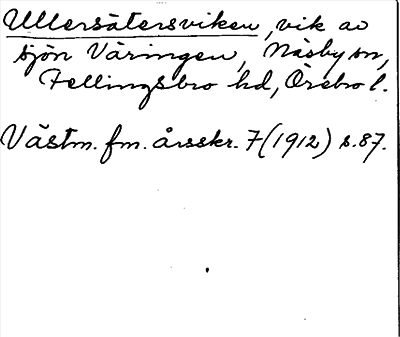 Ullersätersviken, vik av
sjön Väringen, Näsby sn,
Fellingsbro hd, Örebro l.
Västm. fm. årsskr. 7 (1912) s. 87.